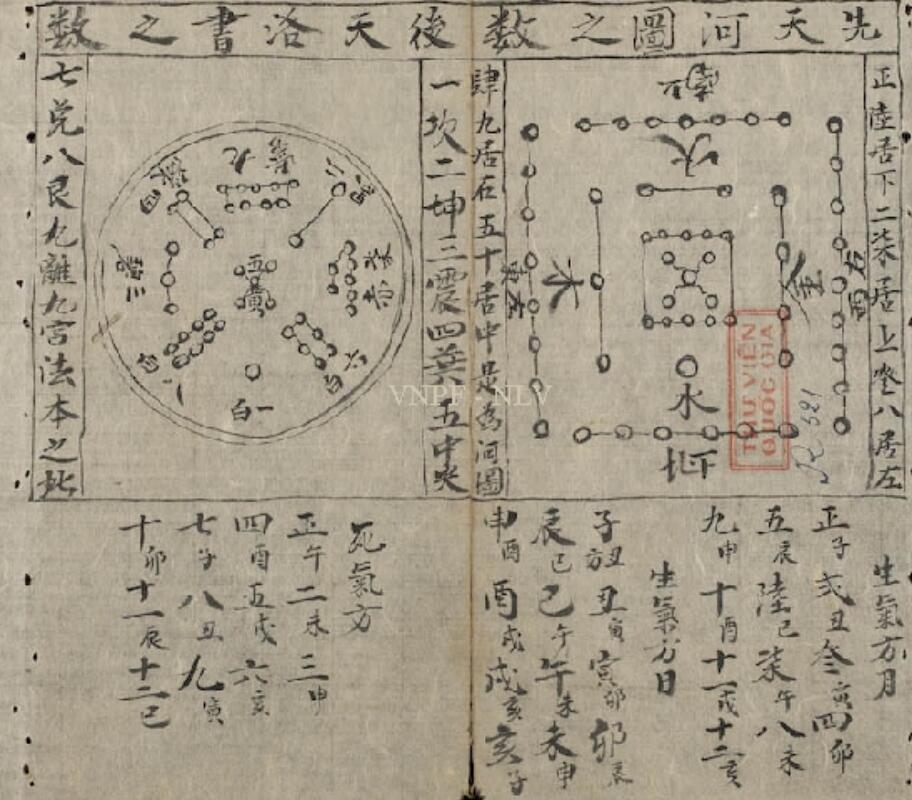 先天河圖之数
後天洛書之数
正陸居下二柒居上叁八居左
肆九居右五十居中是為河圖
一坎二坤三震四巽五中央
七兌八艮九離九宮法本之此
南
火
木
金
水
北下
九紫
四
三
五黃
六白
一白
生氣方月
正子弍丑叁寅四卯
五辰陸巳柒午八未
九申十酉十一戌十二亥
生氣方日
子丑方丑寅寅卯卯辰
辰巳巳午午未未申
申酉酉戌戌亥亥子
死氣方
正午二未三申
四酉五戌六亥
七子八丑九寅
十卯十一辰十二巳
THƯ VIỆN
QUỐC GIA
R 521
VNPF - NLV